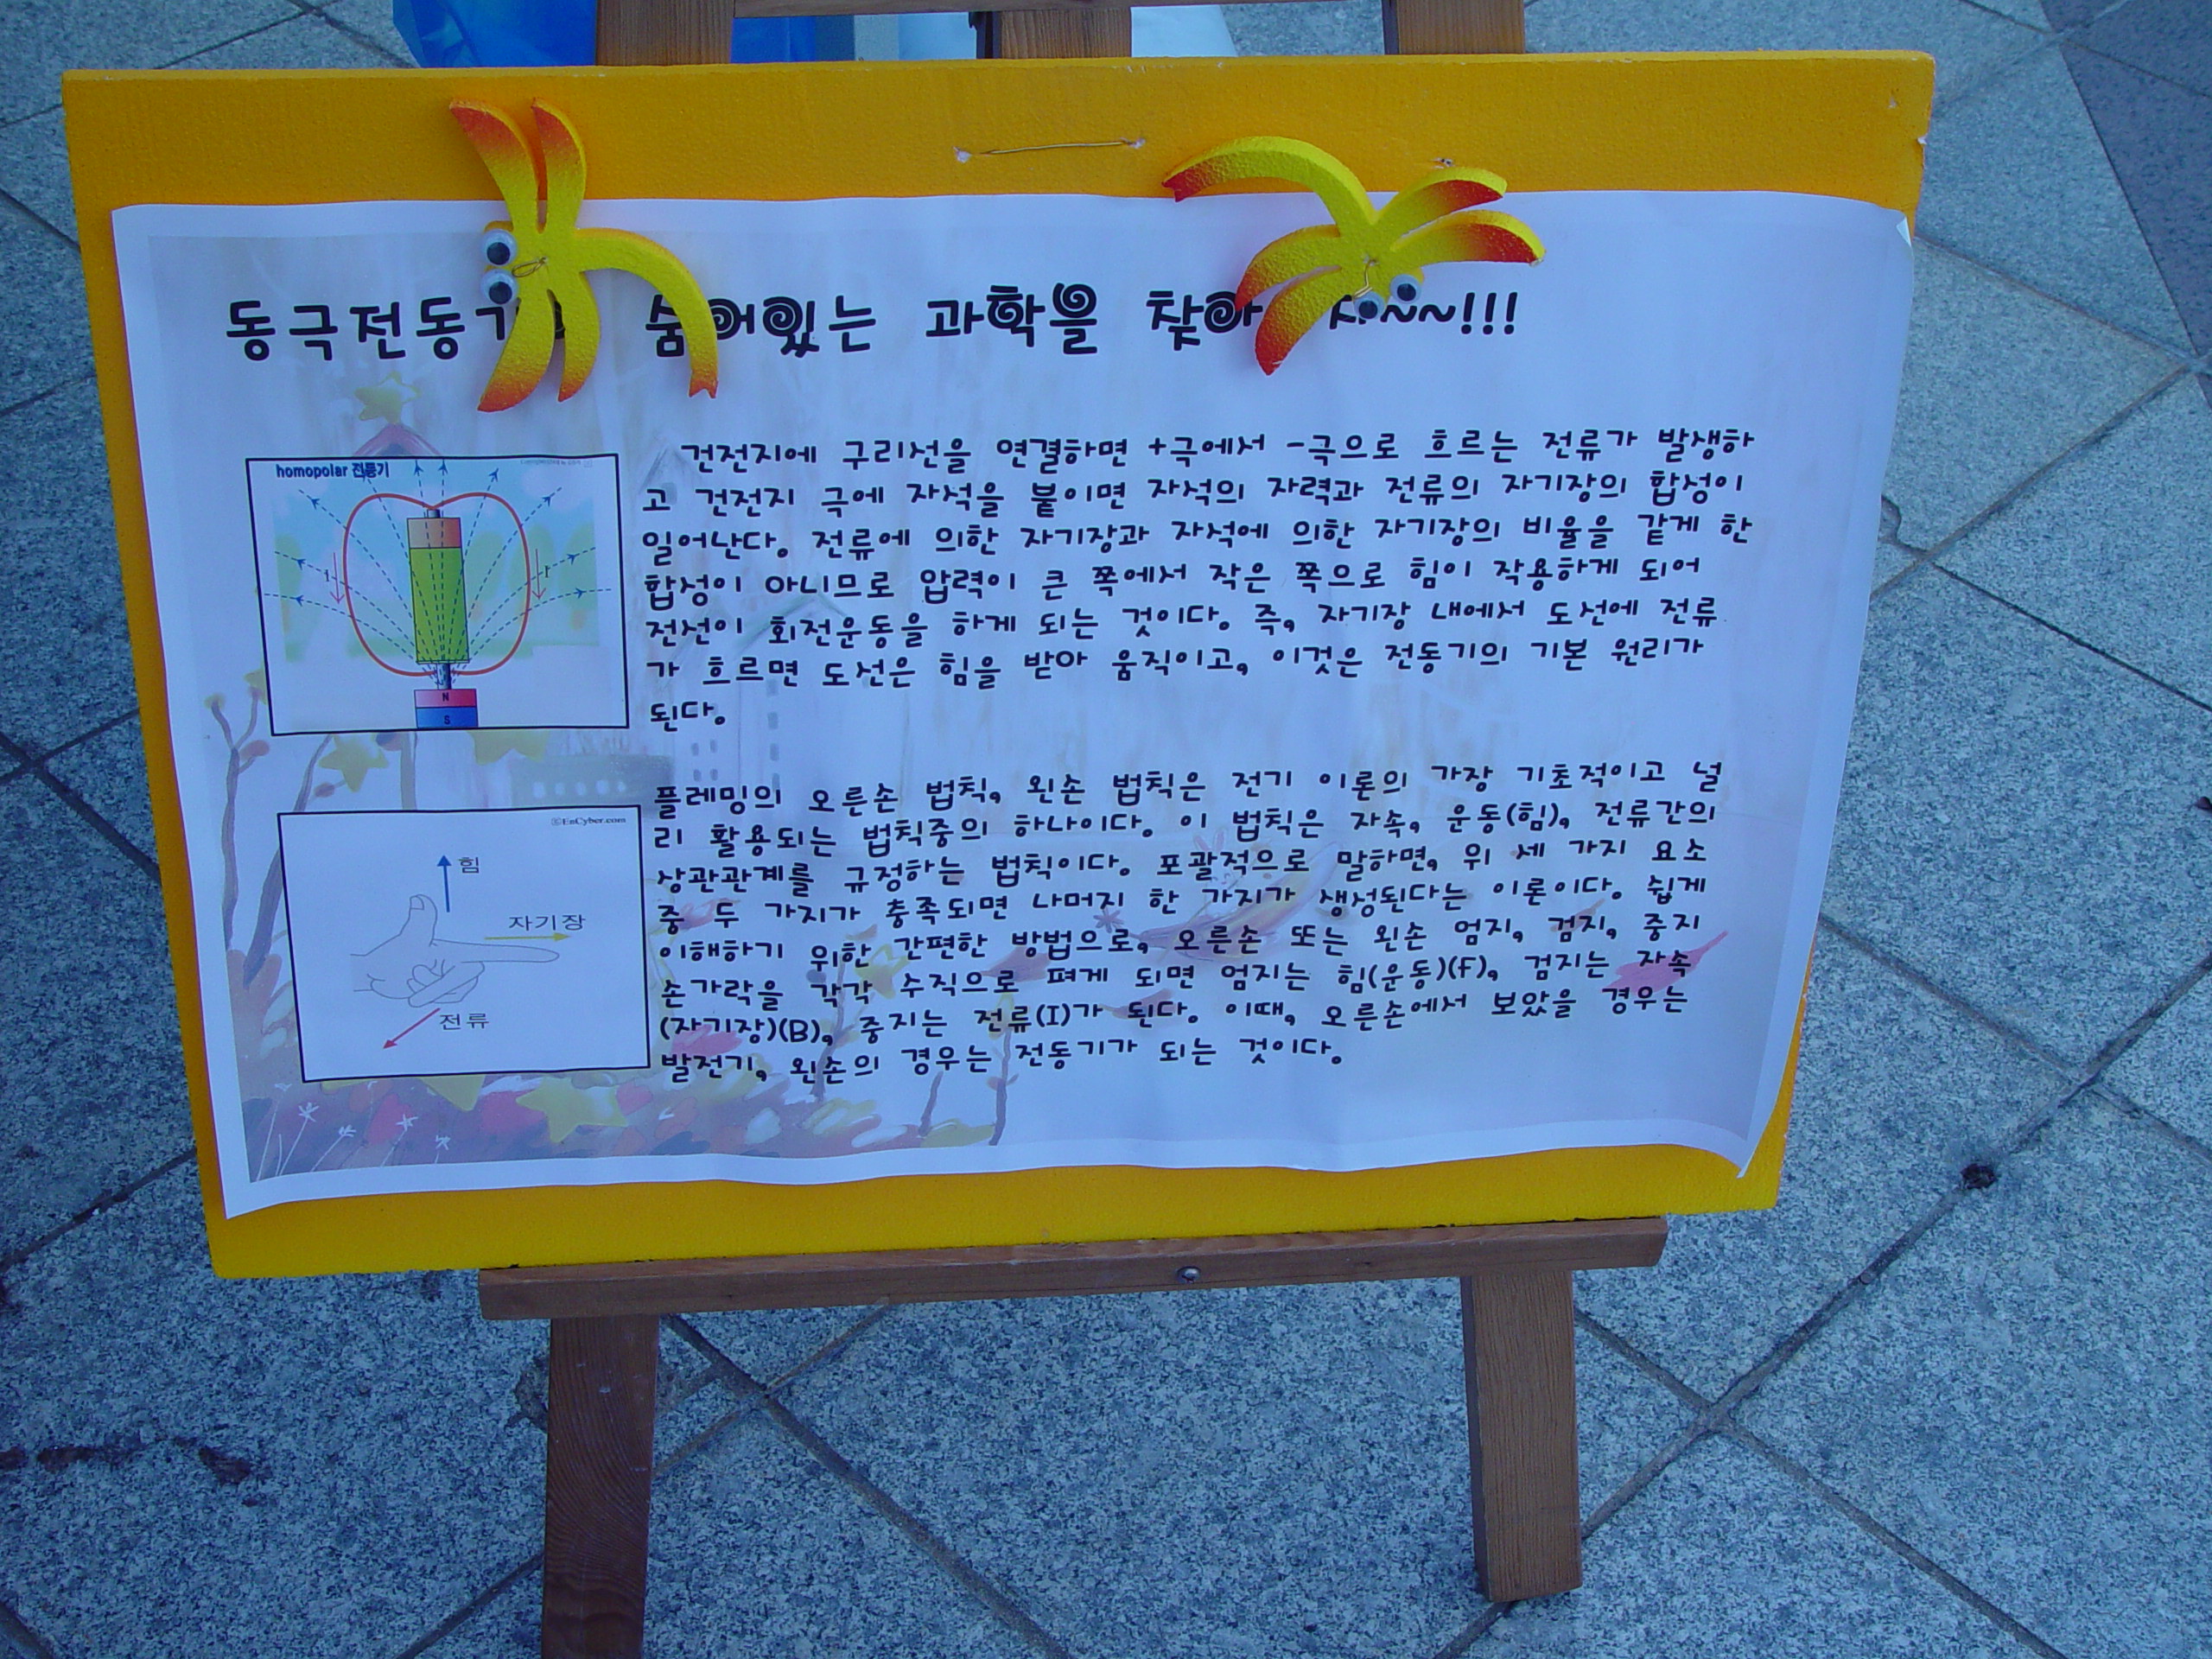 동극전동기 숨어있는 과학을 찾아 자~~~!!!
homopolar 전동기
I I
N
S
건전지에 구리선을 연결하면 +극에서 -극으로 흐르는 전류가 발생하
고 건전지 극에 자석을 붙이면 자석의 자력과 전류의 자기장의 합성이
일어난다. 전류에 의한 자기장과 자석에 의한 자기장의 비율을 같게 한
합성이 아니므로 압력이 큰 쪽에서 작은 쪽으로 힘이 작용하게 되어
전선이 회전운동을 하게 되는 것이다. 즉, 자기장 내에서 도선에 전류
가 흐르면 도선은 힘을 받아 움직이고, 이것은 전동기의 기본 원리가
된다.
©EnCyber.com
힘
자기장
전류
플레밍의 오른손 법칙, 왼손 법칙은 전기 이론의 가장 기초적이고 널
리 활용되는 법칙중의 하나이다. 이 법칙은 자속, 운동(힘), 전류간의
상관관계를 규정하는 법칙이다. 포괄적으로 말하면, 위 세 가지 요소
중 두 가지가 충족되면 나머지 한 가지가 생성된다는 이론이다. 쉽게
이해하기 위한 간편한 방법으로, 오른손 또는 왼손 엄지, 검지, 중지
손가락을 각각 수직으로 펴게 되면 엄지는 힘(운동)(F), 검지는 자속
(자기장)(B), 중지는 전류(I)가 된다. 이때, 오른손에서 보았을 경우는
발전기, 왼손의 경우는 전동기가 되는 것이다.